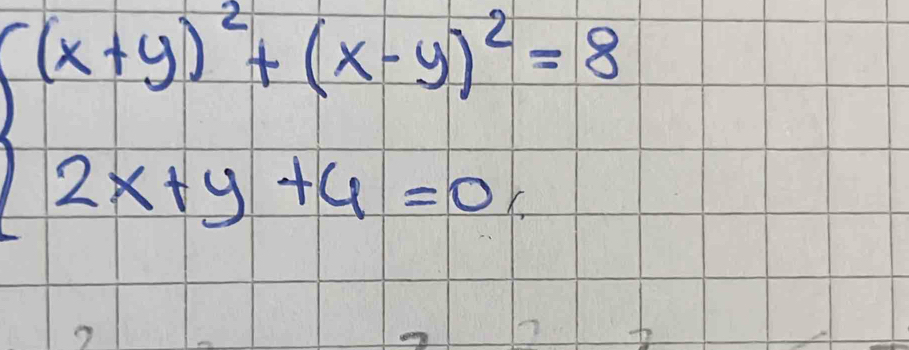 (x+y)² + (x-y)² = 8
2x+y +4 =0